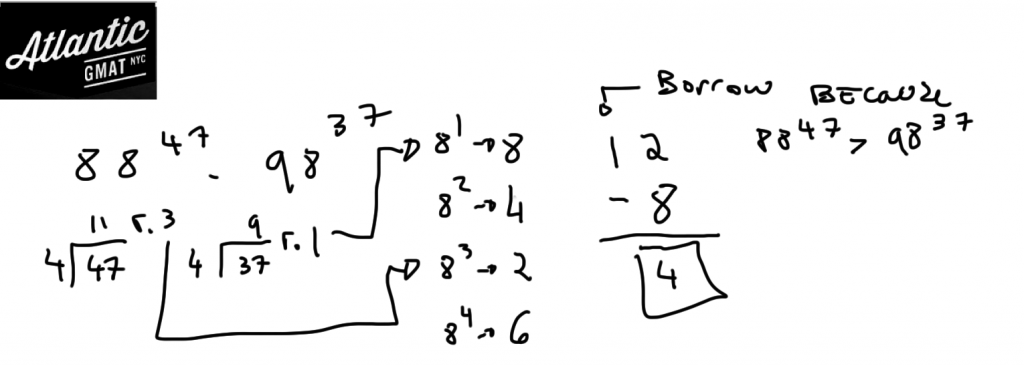 Atlantic
GMAT NYC
88^47 - 98^37
11 r.3
4)47
9 r.1
4)37
8^1 → 8
8^2 → 4
8^3 → 2
8^4 → 6
Borrow
12
- 8
4
BECause
88^47 > 98^37